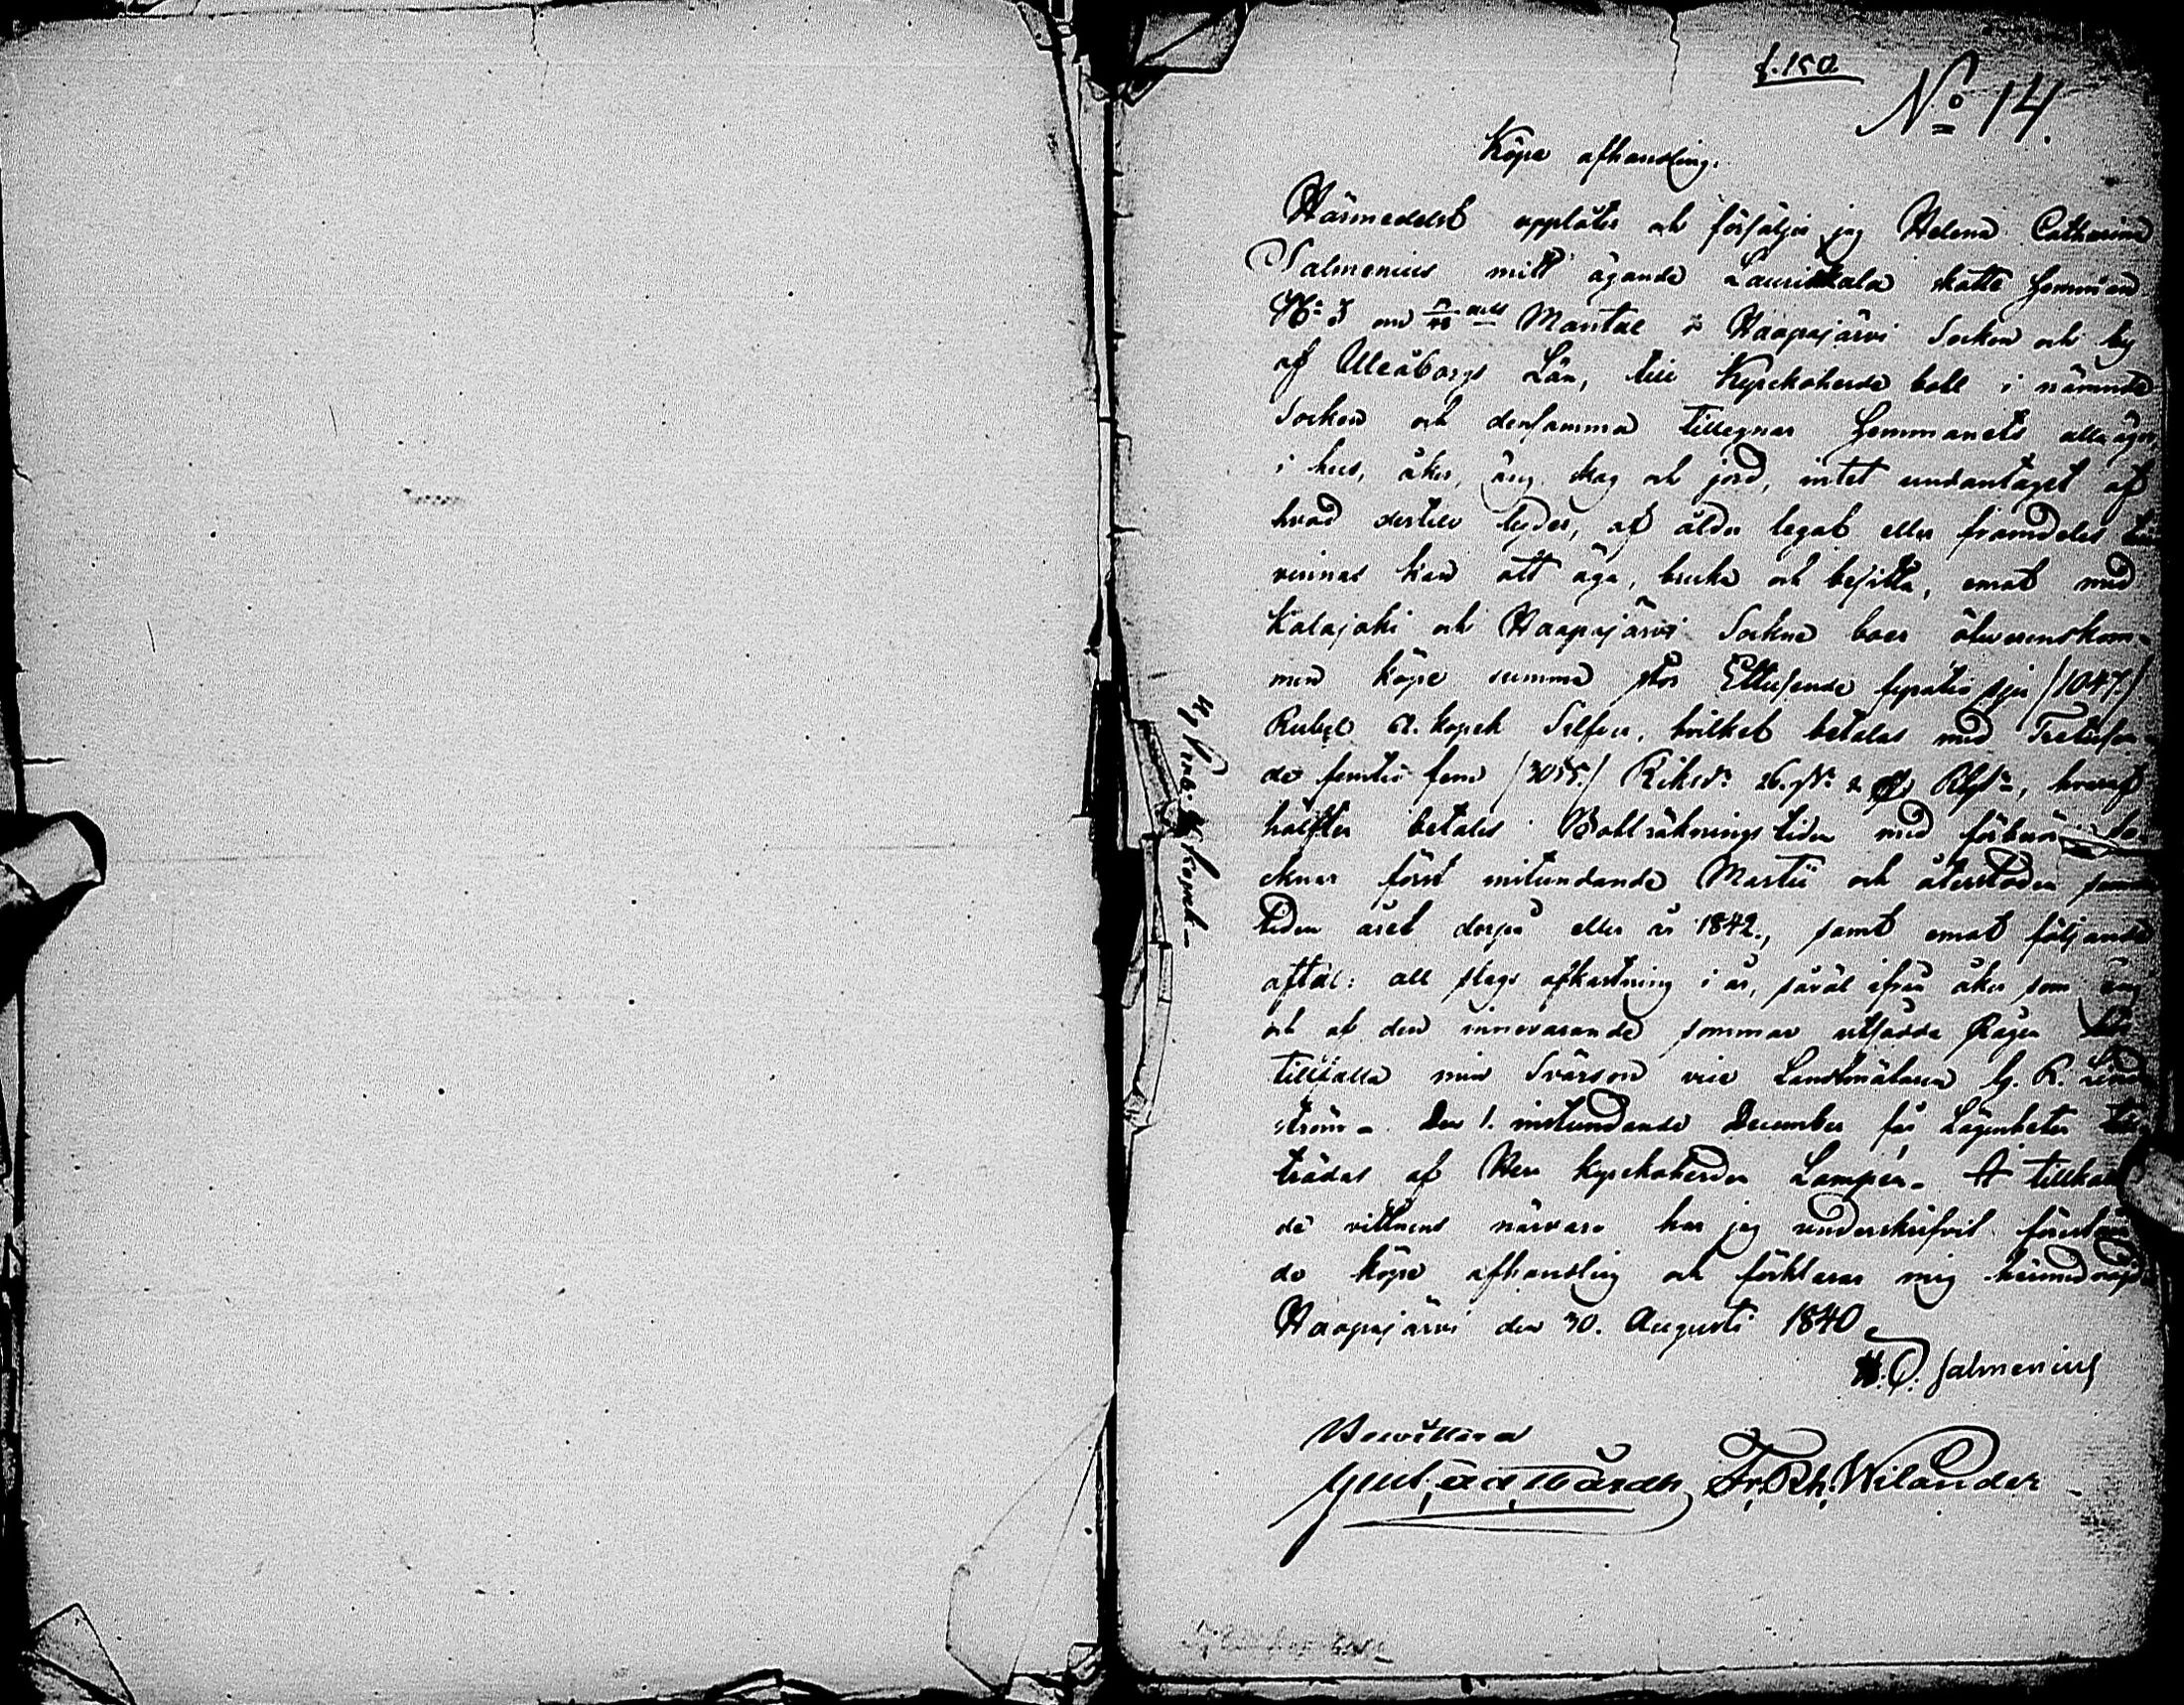 f. 150.
No 14.
Köpe afhandling.
Härmedelst upplåter och försäljer jag Helena Catharina
Salmenius mitt ägande Lauriskala skatte hemman
No 3 om Mantal i Haapajärvi Socken och by
af Uleåborgs Län, till Kyrckoherde boll i nämnde
Socken och densamma tillegnar hemmanets alla ägor
i hus, åker, äng skog och jord, intet undantaget af
hvad dertill lyder, af ålder legat eller framdeles
vinnas kan att äga, bruka och besitta, emot med
Kalajoki och Haapajärvi Sockne boer öfverenskom-
men köpe summa stor Ettusende fyratio sju /1047./
Rubel kopek Silfver, hvilket betalas med Tretusen-
de femtio fem /3055./ Riksdr 26. sk. 2 Rgs, hvaraf
hälften betales Bollräknings tiden med
cknar först instundande Martii och återstoden samma
tiden året derpå eller år 1842., samt emot följande
aftal: all slags afkastning i år, såväl ifrån åker som äng
och af den innevarande sommar utsådda Rågen
tillfalla min Svärson vice Landtmätaren G. R. Lind
ström. Den 1. instundande December får Lägenheten till
trädas af Herr Kyrckoherden Lampén. I tillkalla
de vittnens närvaro har jag underskrifvit förestående
de köpe afhandling och förklarar mig härmed nöjd
Haapajärvi den 30. Augusti 1840.
H. C. Salmenius
Bevittnar
Gust. Ad. Fr. Wilander
kopek